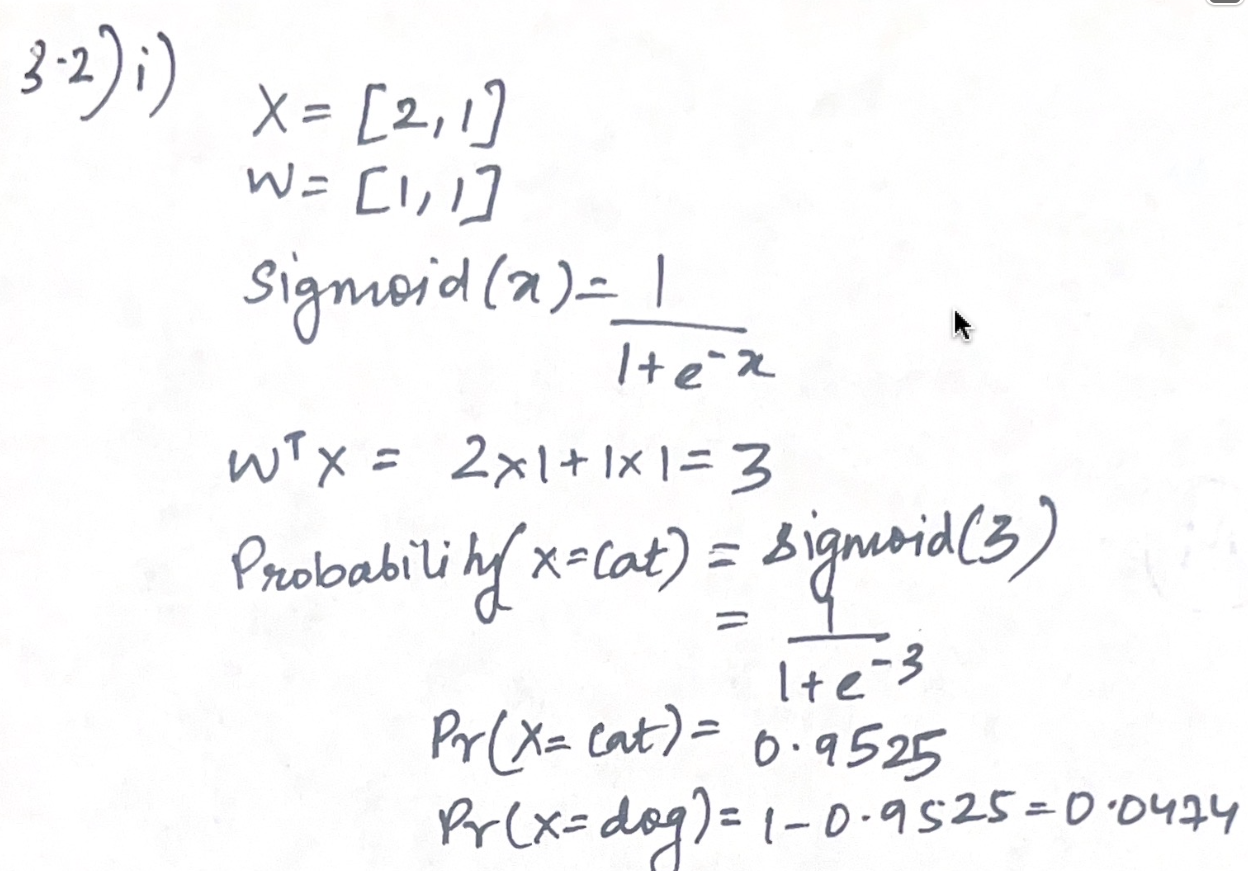 3.2) i)
X = [2, 1]
W = [1, 1]
Sigmoid(x) = 1 / 1 + e^-x
W^T X = 2x1 + 1x1 = 3
Probability(x=Cat) = Sigmoid(3)
= 1 / 1 + e^-3
Pr(X = Cat) = 0.9525
Pr(X = dog) = 1 - 0.9525 = 0.0474